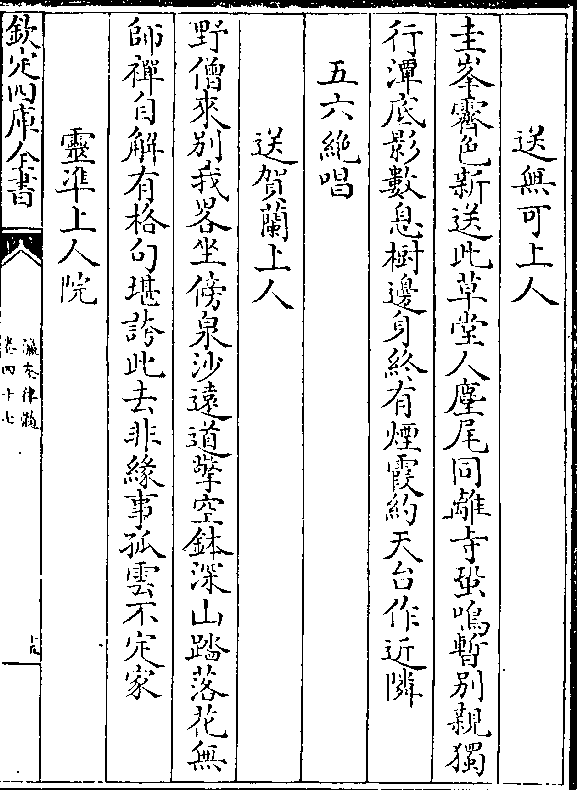 送無可上人
圭峯霽色新送此草堂人麈尾同離寺蛩鳴暫别親獨
行潭底影數息樹邊身終有煙霞約天台作近隣
五六絶唱
送賀蘭上人
野僧來别我畧坐傍泉沙遠道擎空鉢深山踏落花無
師禪自解有格句堪誇此去非緣事孤雲不定家
靈凖上人院
欽定四庫全書
瀛奎律髓
卷四十七